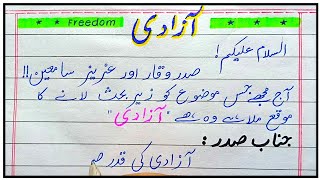 Freedom
آزادی
السلام علیکم!
صدر وقار اور عزیز سامعین!!
آج مجھے جس موضوع کو زیر بحث لانے کا
موقع ملا ہے وہ ہے "آزادی"
جناب صدر :
آزادی کی قدر